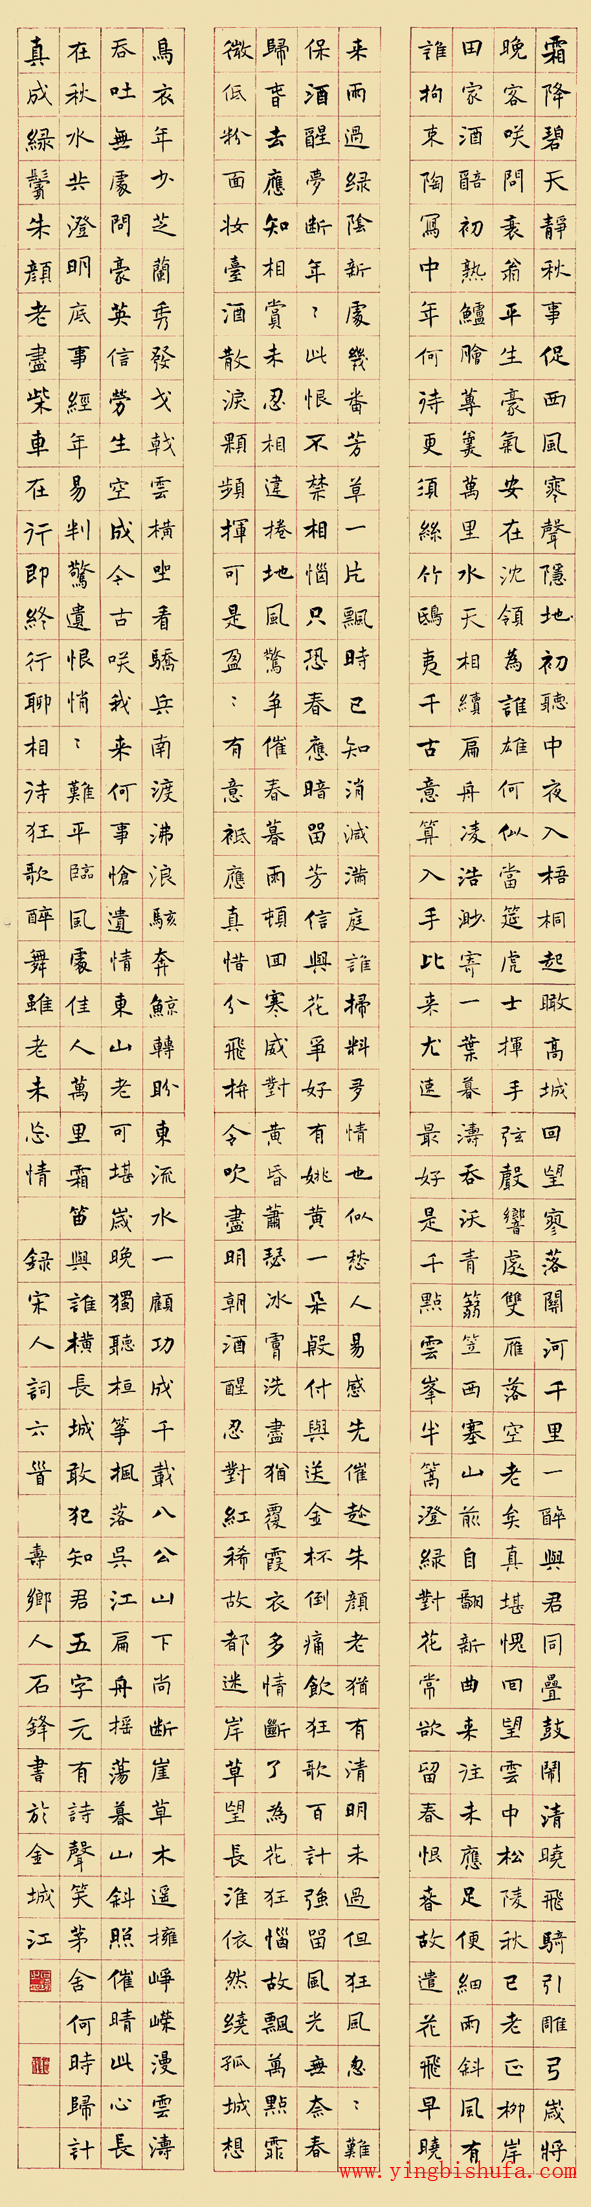 霜降碧天靜秋事促西風寒聲隱地初聽中夜入梧桐起瞰高城回望寥落關河千里一醉與君同疊鼓鬧清曉飛騎引雕弓歲將
晚客咲問衰翁平生豪氣安在沈領為誰雄何似當筵虎士揮手弦聲響處雙雁落空老矣真堪愧回望雲中松陵秋已老正柳岸
田家酒醅初熟鱸膾蓴羹萬里水天相續扁舟凌浩渺寄一葉暮濤吞沃青蒻笠西塞山前自翻新曲来往未應足便細雨斜風有
誰拘束陶寫中年何待更須絲竹鴟夷千古意算入手比来尤速最好是千點雲峯半篙澄綠對花常欲留春恨春故遣花飛早曉
来雨過绿陰新處幾番芳草一片飄時已知消減滿庭誰掃料多情也似愁人易感先催趁朱顏老猶有清明未過但狂風忽〻難
保酒醒夢断年〻此恨不禁相惱只恐春應暗留芳信與花爭好有姚黃一朵殷付與送金杯倒痛飲狂歌百計強留風光無奈春
歸春去應知相賞未忍相違捲地風驚争催春暮雨頓回寒威對黃昏蕭瑟冰膚洗盡猶覆霞衣多情斷了為花狂惱故飄萬點霏
微低粉面妝臺酒散淚顆頻揮可是盈〻有意衹應真惜分飛拚令吹盡明朝酒醒忍對紅稀故都迷岸草望長淮依然繞孤城想
烏衣年少芝蘭秀發戈戟雲橫坐看驕兵南渡沸浪駭奔鯨轉盼東流水一顧功成千載八公山下尚断崖草木遥擁崢嶸漫雲濤
吞吐無處問豪英信勞生空成今古咲我来何事愴遺情東山老可堪歲晚獨聽桓箏楓落吳江扁舟搖蕩暮山斜照催晴此心長
在秋水共澄明底事經年易判驚遺恨悄〻難平臨風處佳人萬里霜笛與誰橫長城敢犯知君五字元有詩聲笑茅舍何時歸計
真成綠鬢朱顏老盡柴車在行即終行聊相待狂歌醉舞雖老未忘情 録宋人詞六首 壽鄉人石鋒書於金城江
www.yingbishufa.com